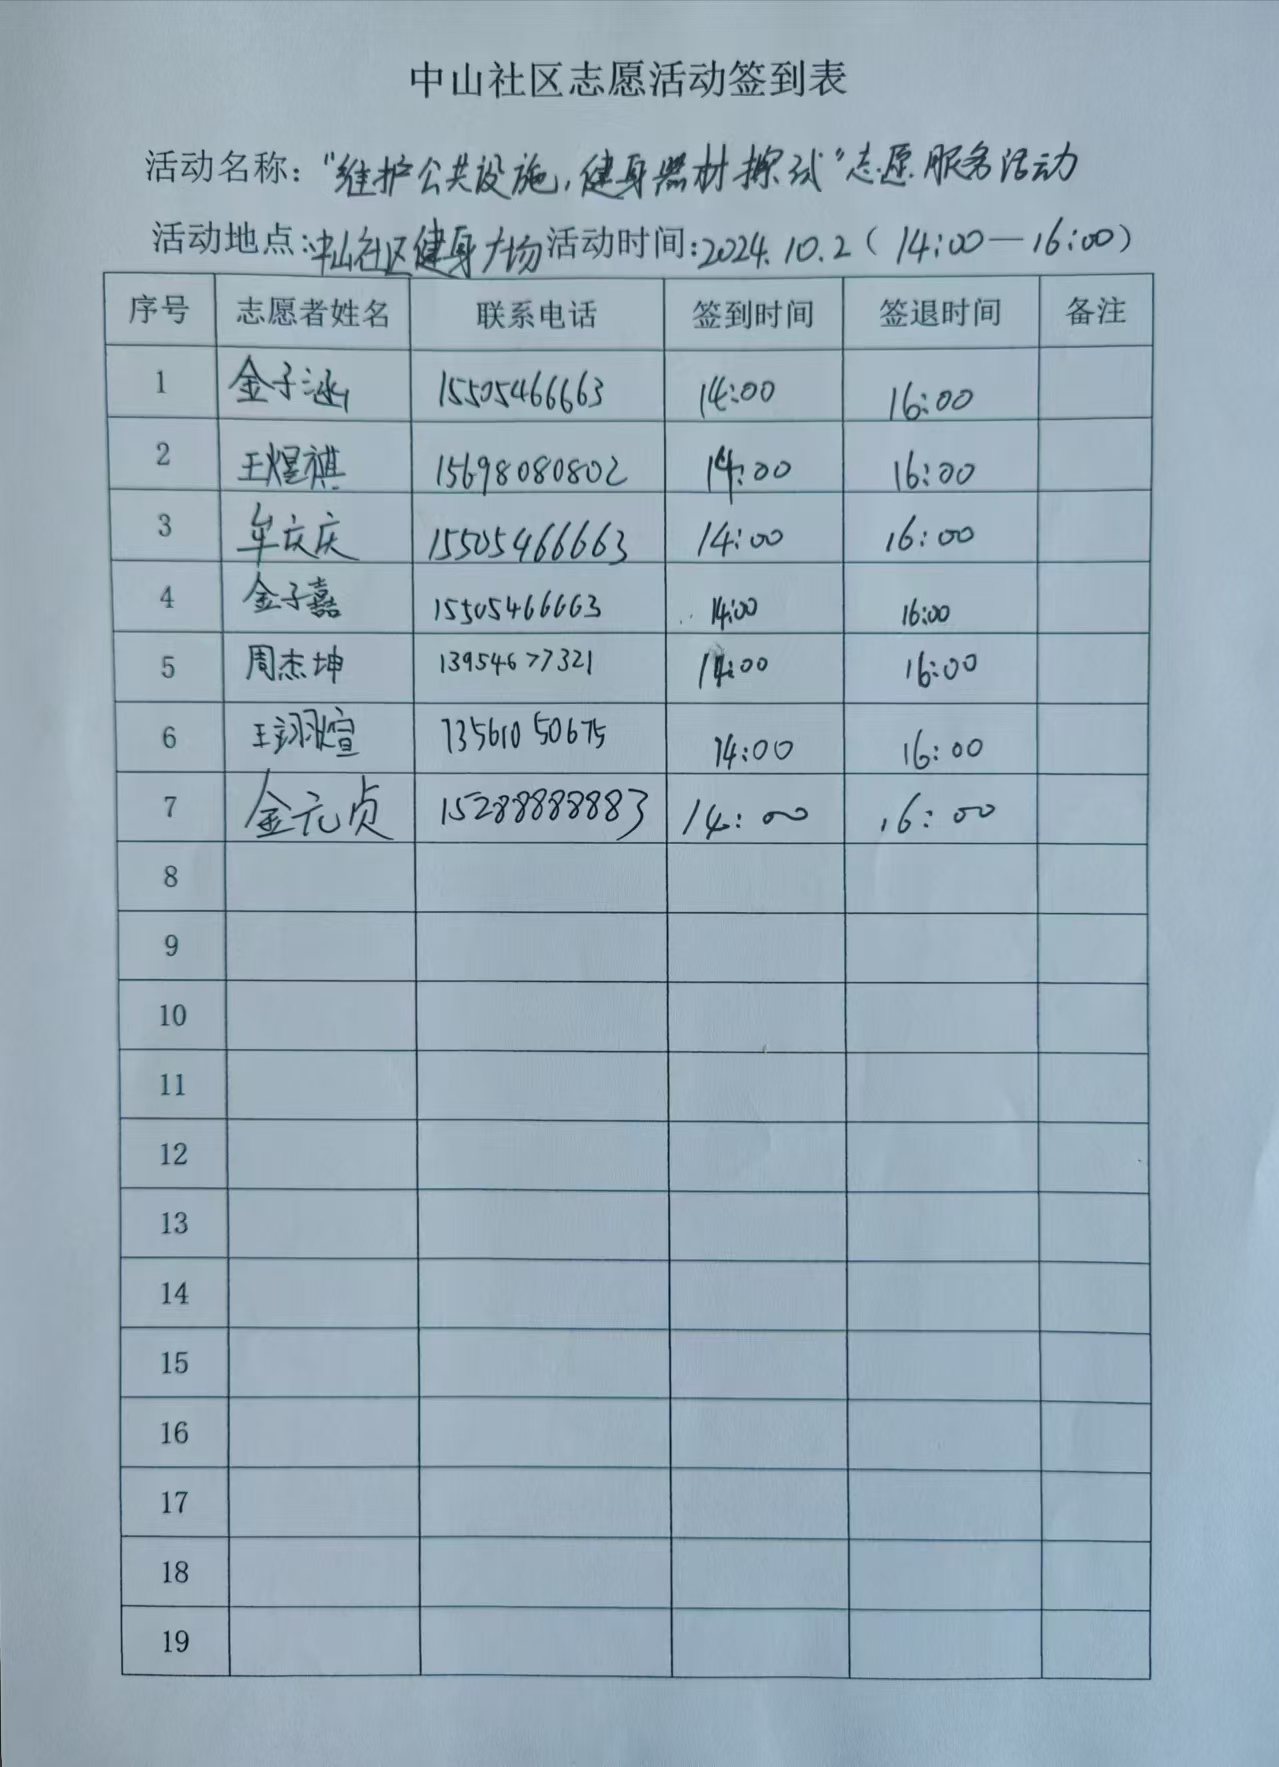 中山社区志愿活动签到表
活动名称："维护公共设施,健身器材擦拭"志愿服务活动
活动地点:中山社区健身广场 活动时间:2024.10.2（14:00—16:00）
序号 志愿者姓名 联系电话 签到时间 签退时间 备注
1 金子涵 15505466663 14:00 16:00
2 王煜祺 15698080802 14:00 16:00
3 牟庆庆 15505466663 14:00 16:00
4 金子嘉 15505466663 14:00 16:00
5 周杰坤 13954677321 14:00 16:00
6 王翊煊 13561050675 14:00 16:00
7 金元贞 15288888883 14:00 16:00
8
9
10
11
12
13
14
15
16
17
18
19